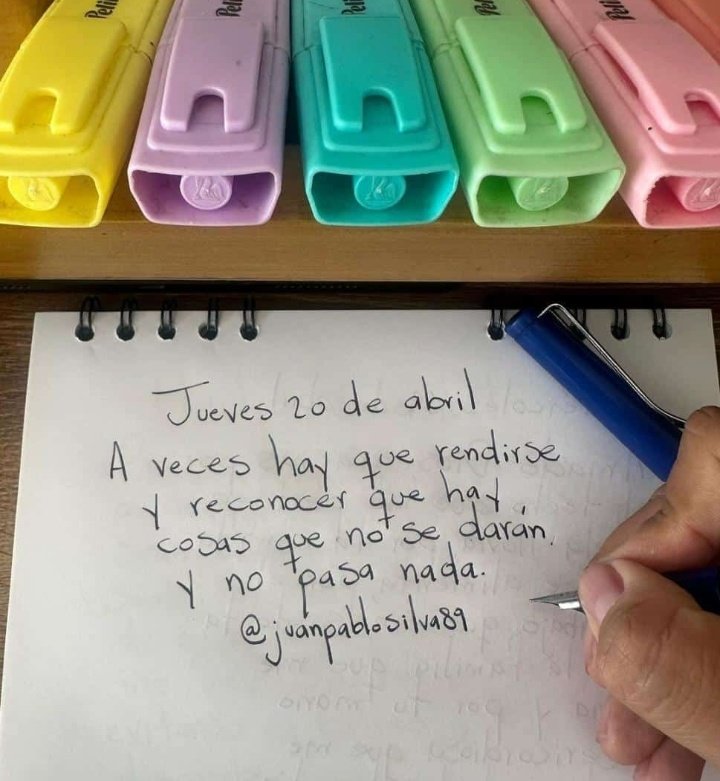 Jueves 20 de abril
A veces hay que rendirse
y reconocer que hay
cosas que no se darán.
Y no pasa nada.
@juanpablosilva89